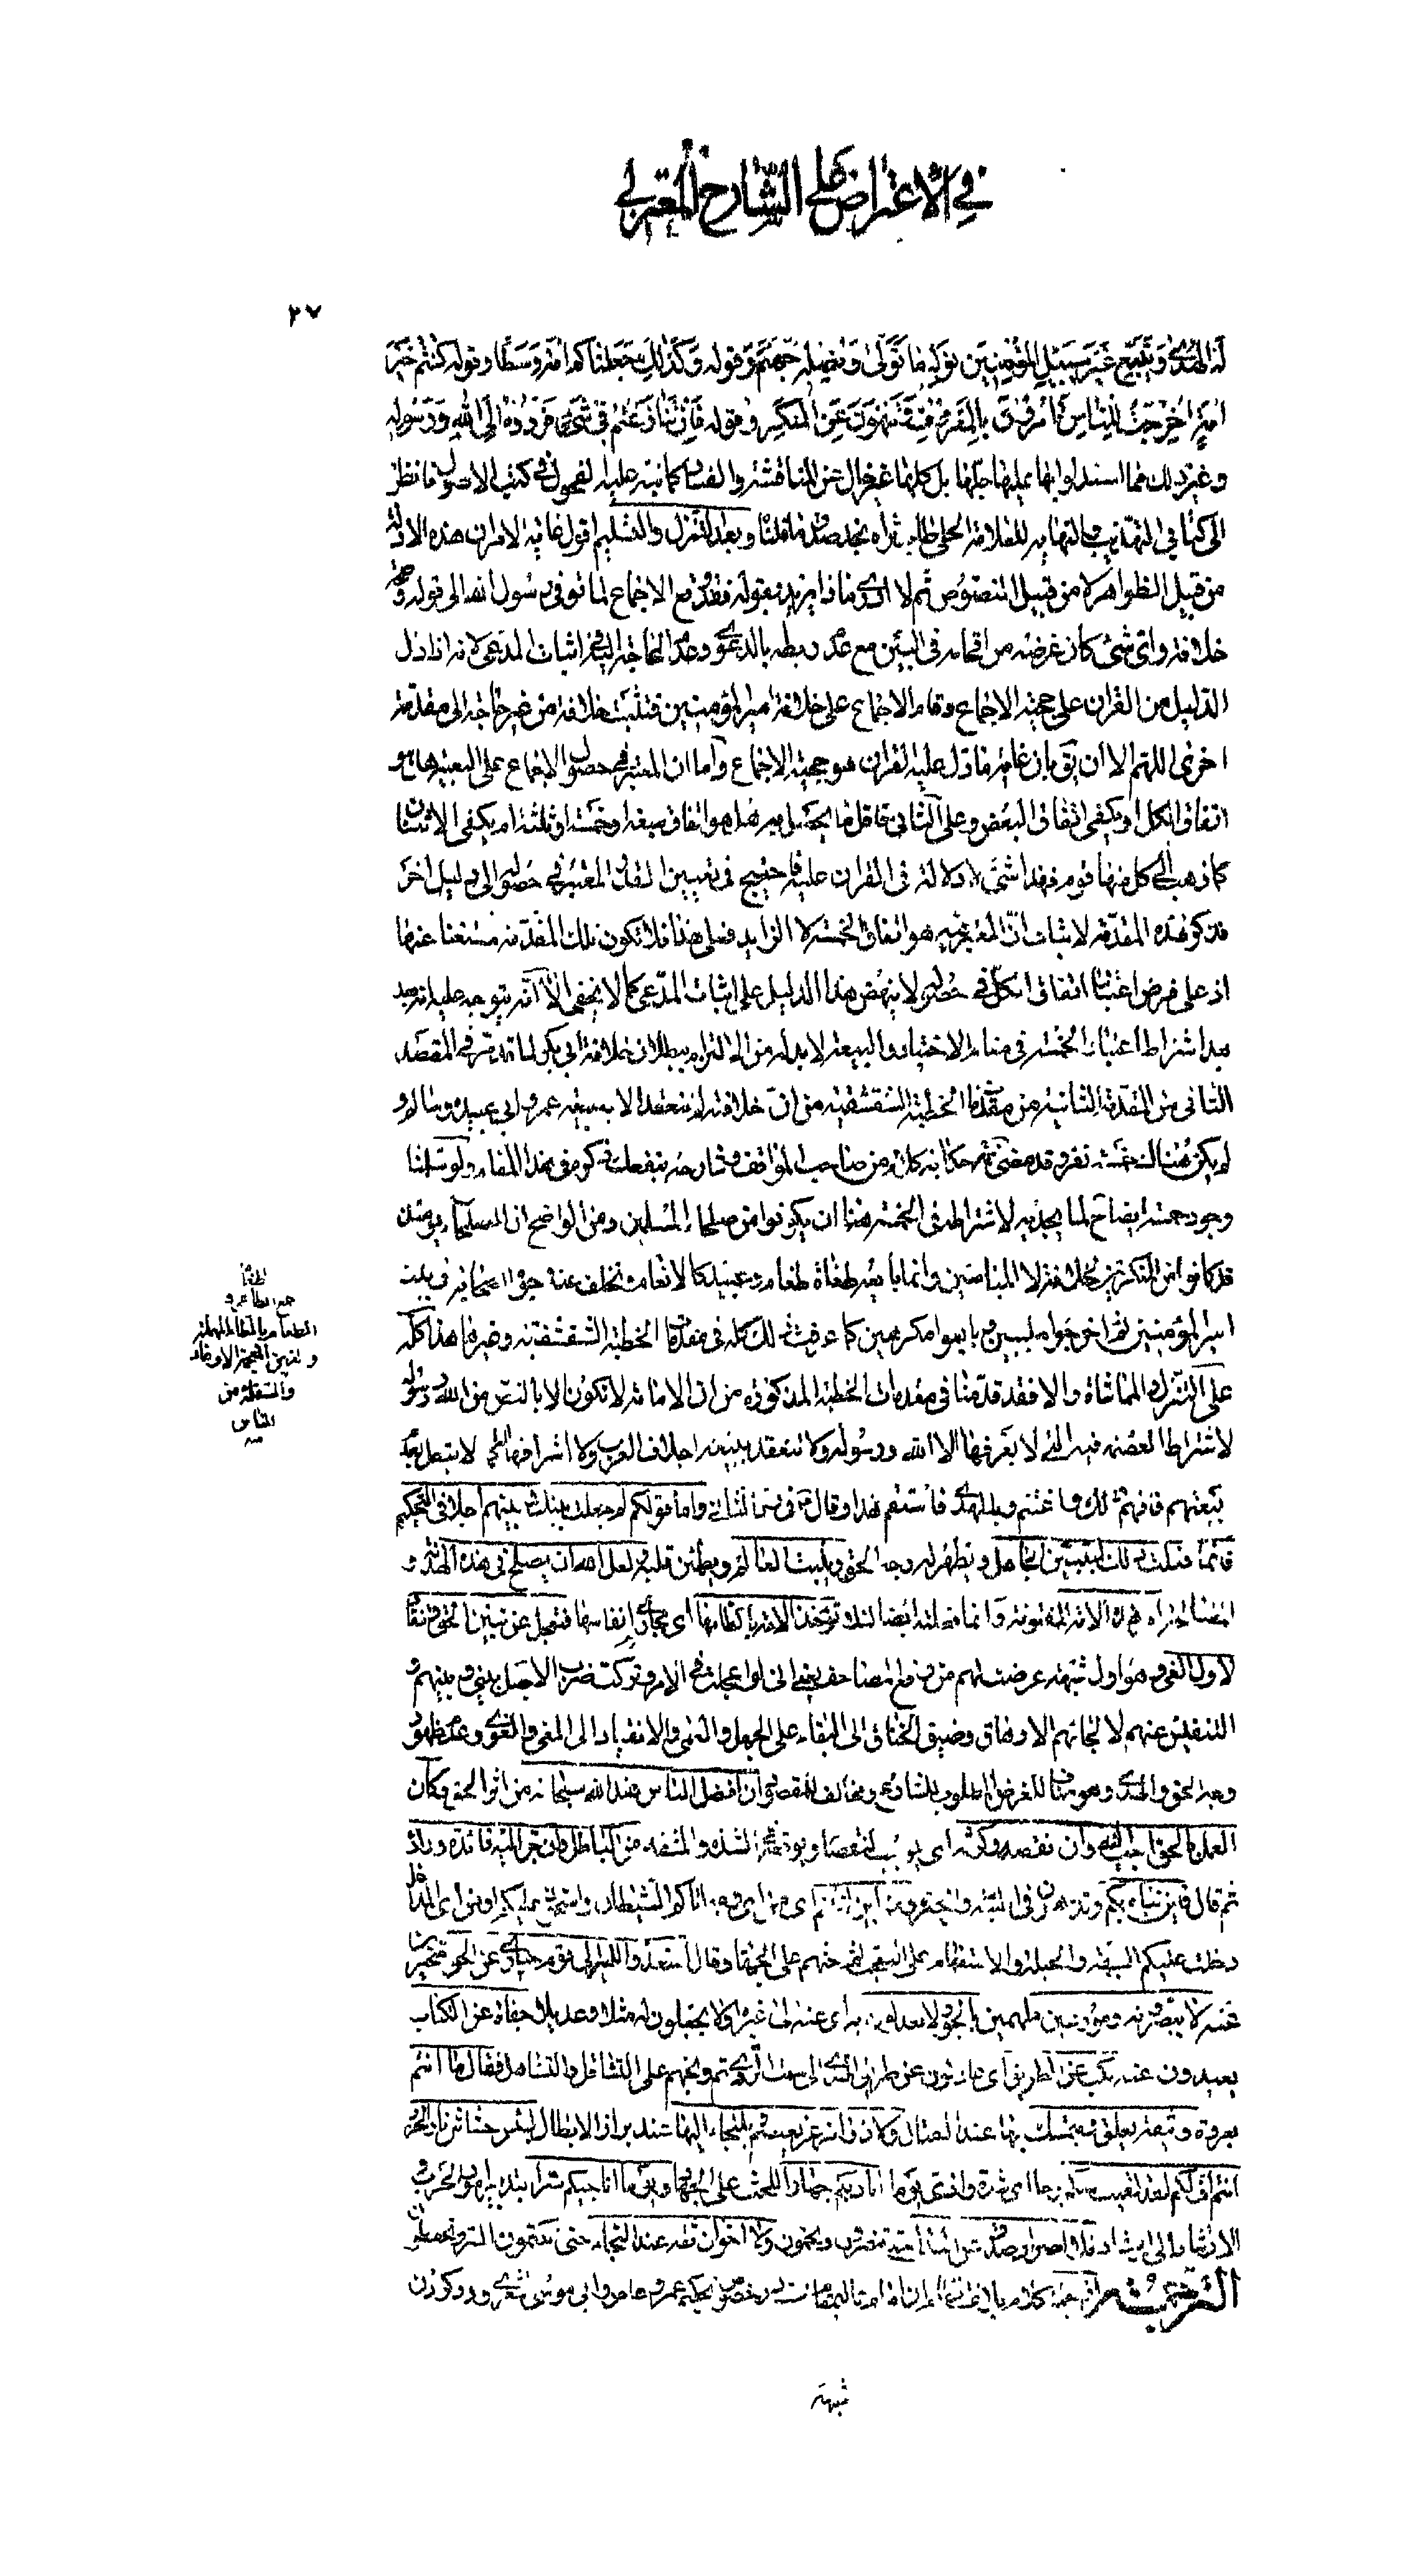 في الاعتراض على الشارح المعتزلي
٢٧
له الهدى ويتبع غير سبيل المؤمنين نوله ما تولى ونصله جهنم وقوله وكذلك جعلناكم امة وسطا وقوله كنتم خير
امة اخرجت للناس تأمرون بالمعروف وتنهون عن المنكر وقوله فان تنازعتم في شيء فردوه الى الله ورسوله
وغير ذلك مما استدلوا بها عليها جلها بل كلها غير خال عن المناقشة والفساد كما نبه عليه الفحول في كتب الاصول فانظر
الى كتابي التهذيب والنهاية للعلامة الحلي طاب ثراه تجد صدق ما قلنا وبعد التنزل والتسليم اقول غاية الامر ان هذه الادلة
من قبيل الظواهر لا من قبيل النصوص ثم لا ادري ماذا يريد بقوله فقد وقع الاجماع لما توفي رسول الله الى قوله وصحة
خلافته واي شيء كان غرضه من اقحامه في البين مع عدم ربطه بالدعوى وعدم الحاجة اليه في اثبات المدعى لانه اذا دل
الدليل من القرآن على حجية الاجماع وقام الاجماع على خلافة امير المؤمنين فتثبت خلافته من غير حاجة الى مقدمة
اخرى اللهم الا ان يق بان غاية ما دل عليه القرآن هو حجية الاجماع واما ان المعتبر في حصول الاجماع على البيعة هل هو
اتفاق الكل او يكفي اتفاق البعض وعلى الثاني فاقل ما يحصل به هل هو اتفاق سبعة او خمسة او ثلثة ام يكفي الاثنان
كما ذهب الى كل منها قوم فهذا شيء لا دلالة في القرآن عليه فاحتيج في تعيين القدر المعتبر في حصوله الى دليل آخر
فذكر هذه المقدمة لاثبات ان المعتبر فيه هو اتفاق الخمسة لا الزايد فعلى هذا فلا تكون تلك المقدمة مستغنا عنها
اذ على فرض اعتبار اتفاق الكل في حصوله لا ينهض هذا الدليل على اثبات المدعى كما لا يخفى الا انه يتوجه عليه انه بعد
بعد اشتراط اعتبار الخمسة في مناط الاختيار والبيعة لا بد له من التزام ببطلان خلافة ابي بكر لما تقدم في المقصد
الثاني من المقدمة الثانية من مقدمات الخطبة الشقشقية من ان خلافته لم تنعقد الا ببيعة عمر وابي عبيدة وسالم و
لم يكن هنا خمسة نفر وقد مضى ثمة حكاية كلام من صاحب المواقف وشارحه ينفعك ذكره في هذا المقام ولو سلمنا
وجود خمسة ايضا لما يجديه لاشتراطه في الخمسة هذه ان يكونوا من صلحاء المسلمين ومن الواضح ان الصلحاء يومئذ
قد كانوا من المنكرين لخلافته لا المبايعين وانما بايعه طغاة طغام وعبيد كالانعام وتخلف عنه حق الصحابة في بيت
امير المؤمنين ثم اخرجوا ملببين وبايعوا مكرهين كما عرفت ذلك كله في مقدمات الخطبة الشقشقية وغيرها هذا كله
على التنزل والمماشاة والا فقد قدمنا في مقدمات الخطبة المذكورة من ان الامامة لا تكون الا بالنص من الله ورسوله
لاشتراط العصمة فيه التي لا يعرفها الا الله ورسوله ولا تنعقد ببيعة اجلاف العرب ولا اشرافها
فافهم ذلك واغتنم وبالهدى فاستقم هذا وقال واما قولكم لم جعلت بينك وبينهم اجلا في التحكيم
فانما فعلت ذلك ليتبين الجاهل ويظهر له وجه الحق ويتثبت العالم ويطمئن قلبه ولعل الله ان يصلح في هذه الهدنة و
المصالحة امر هذه الامة المفتونة وانما فعلته ايضا لئلا تؤخذ الامة باكظامها اي مجاري انفاسها فتعجل عن تبين الحق وتنقاد
لاول الغي وهو اول شبهة عرضت لهم من رفع المصاحف يعني اني لو اعجلت في الامر وتركت ضرب الاجل بيني وبينهم و
التنفيس عنهم لالجأتهم الارهاق وضيق الخناق الى البقاء على الجهل والعمى والانقياد الى الغي والغوى وعدم ظهور
وجه الحق والهدى وهو مناف للغرض المطلوب للشارع ومخالف للمقصود ان افضل الناس عند الله سبحانه من آثر الحق وكان
العمل بالحق احب اليه وان نقصه وكرثه اي يوجب نقصا ويوقعه في الشدة والمشقة من الباطل وان جر اليه فائدة وزاده
ثم قال فاين يتاه بكم وتذهبون في التيه والحيرة ومن اين اتيتم اي من اي وجه اتاكم الشيطان واستحوذ عليكم او من اي المداخل
دخلت عليكم الشبهة والحيلة والاستفهام على التعجب ثم حثهم على الجهاد وقال استعدوا للمسير الى قوم حيارى عن الحق
عنه لا يبصرونه وموزعين ملهمين بالجور لا يعدلون به اي عنه الى غيره ولا يجعلون له مثلا وعديلا جفاة عن الكتاب
يبعدون عنه نكب عن الطريق اي عادلون عن طريق الهدى الى سمت الردى ثم وبخهم على التثاقل والتشاغل فقال ما انتم
بعروة وثيقة يعلق بها ويتمسك بها عند القتال ولا زوافر عز يعتصم بها ويلتجأ اليها عند براز الابطال لبئس حشاش نار الحرب
انتم اف لكم لقد لقيت منكم برحا اي شدة واذى يوما اناديكم جهارا للحث على الجهاد ويوما اناجيكم سرا بتدبير امور الحرب و
الارشاد الى الرشاد فلا احرار صدق عند النداء ولا اخوان ثقة عند النجاء حتى تكتمون السر وتحفظون
الترجمة از جمله كلام بلاغت نظام آن امام انام است در خصوص تحكيم عمرو عاص وابي موسى اشعري ورد كردن
الطغاة
جمع الطاغي و
الطغام بالطاء المهملة
والغين المعجمة الاوغاد
والسفلة من
الناس
منه
شبهة